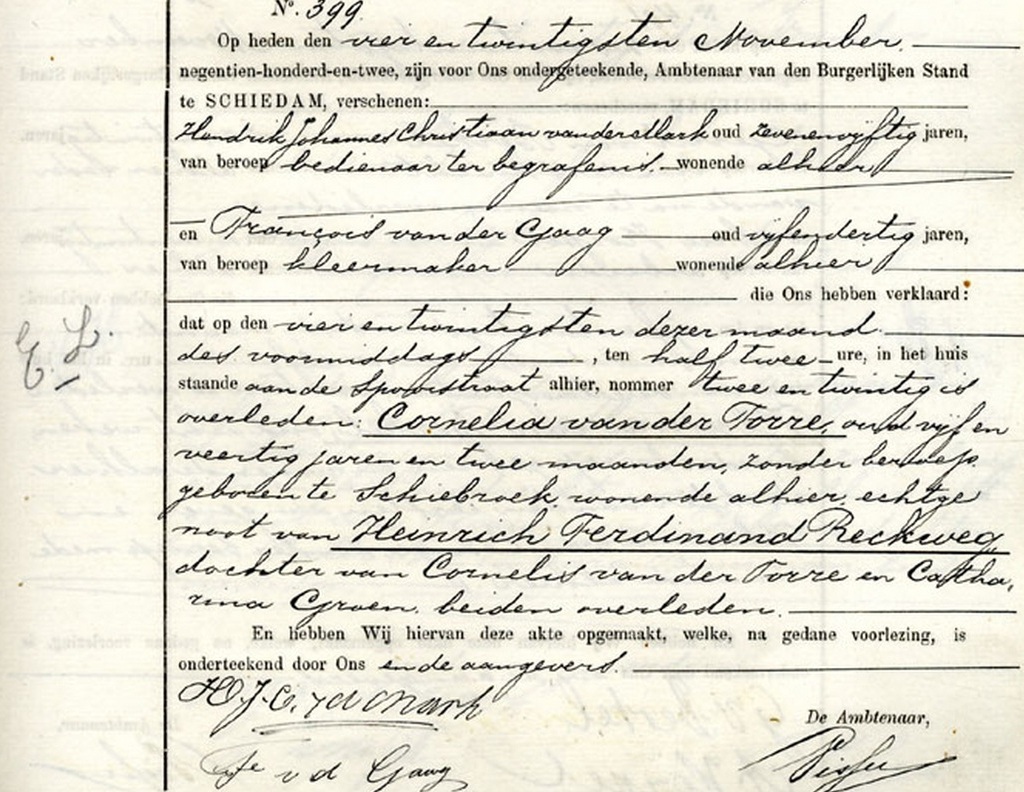 N°. 399.
Op heden den vier en twintigsten November.
negentien-honderd-en-twee, zijn voor Ons ondergeteekende, Ambtenaar van den Burgerlijken Stand
te SCHIEDAM, verschenen:
Hendrik Johannes Christiaan van der Mark oud zevenenvijftig jaren,
van beroep bedienaar ter begrafenis. wonende alhier
en François van der Gaag oud vijfendertig jaren,
van beroep kleermaker wonende alhier
die Ons hebben verklaard:
dat op den vier en twintigsten dezer maand
des voormiddags, ten half twee ure, in het huis
E. L.
staande aan de Spoorstraat alhier, nommer twee en twintig is
overleden: Cornelia van der Torre, oud vijf en
veertig jaren en twee maanden, zonder beroep
geboren te Schiebroek, wonende alhier, echtge
noot van Heinrich Ferdinand Reckweg,
dochter van Cornelis van der Torre en Catha,
rina Groen, beiden overleden.
En hebben Wij hiervan deze akte opgemaakt, welke, na gedane voorlezing, is
onderteekend door Ons en de aangevers.
H. J. C. v d Mark
De Ambtenaar,
Fr v d Gaag